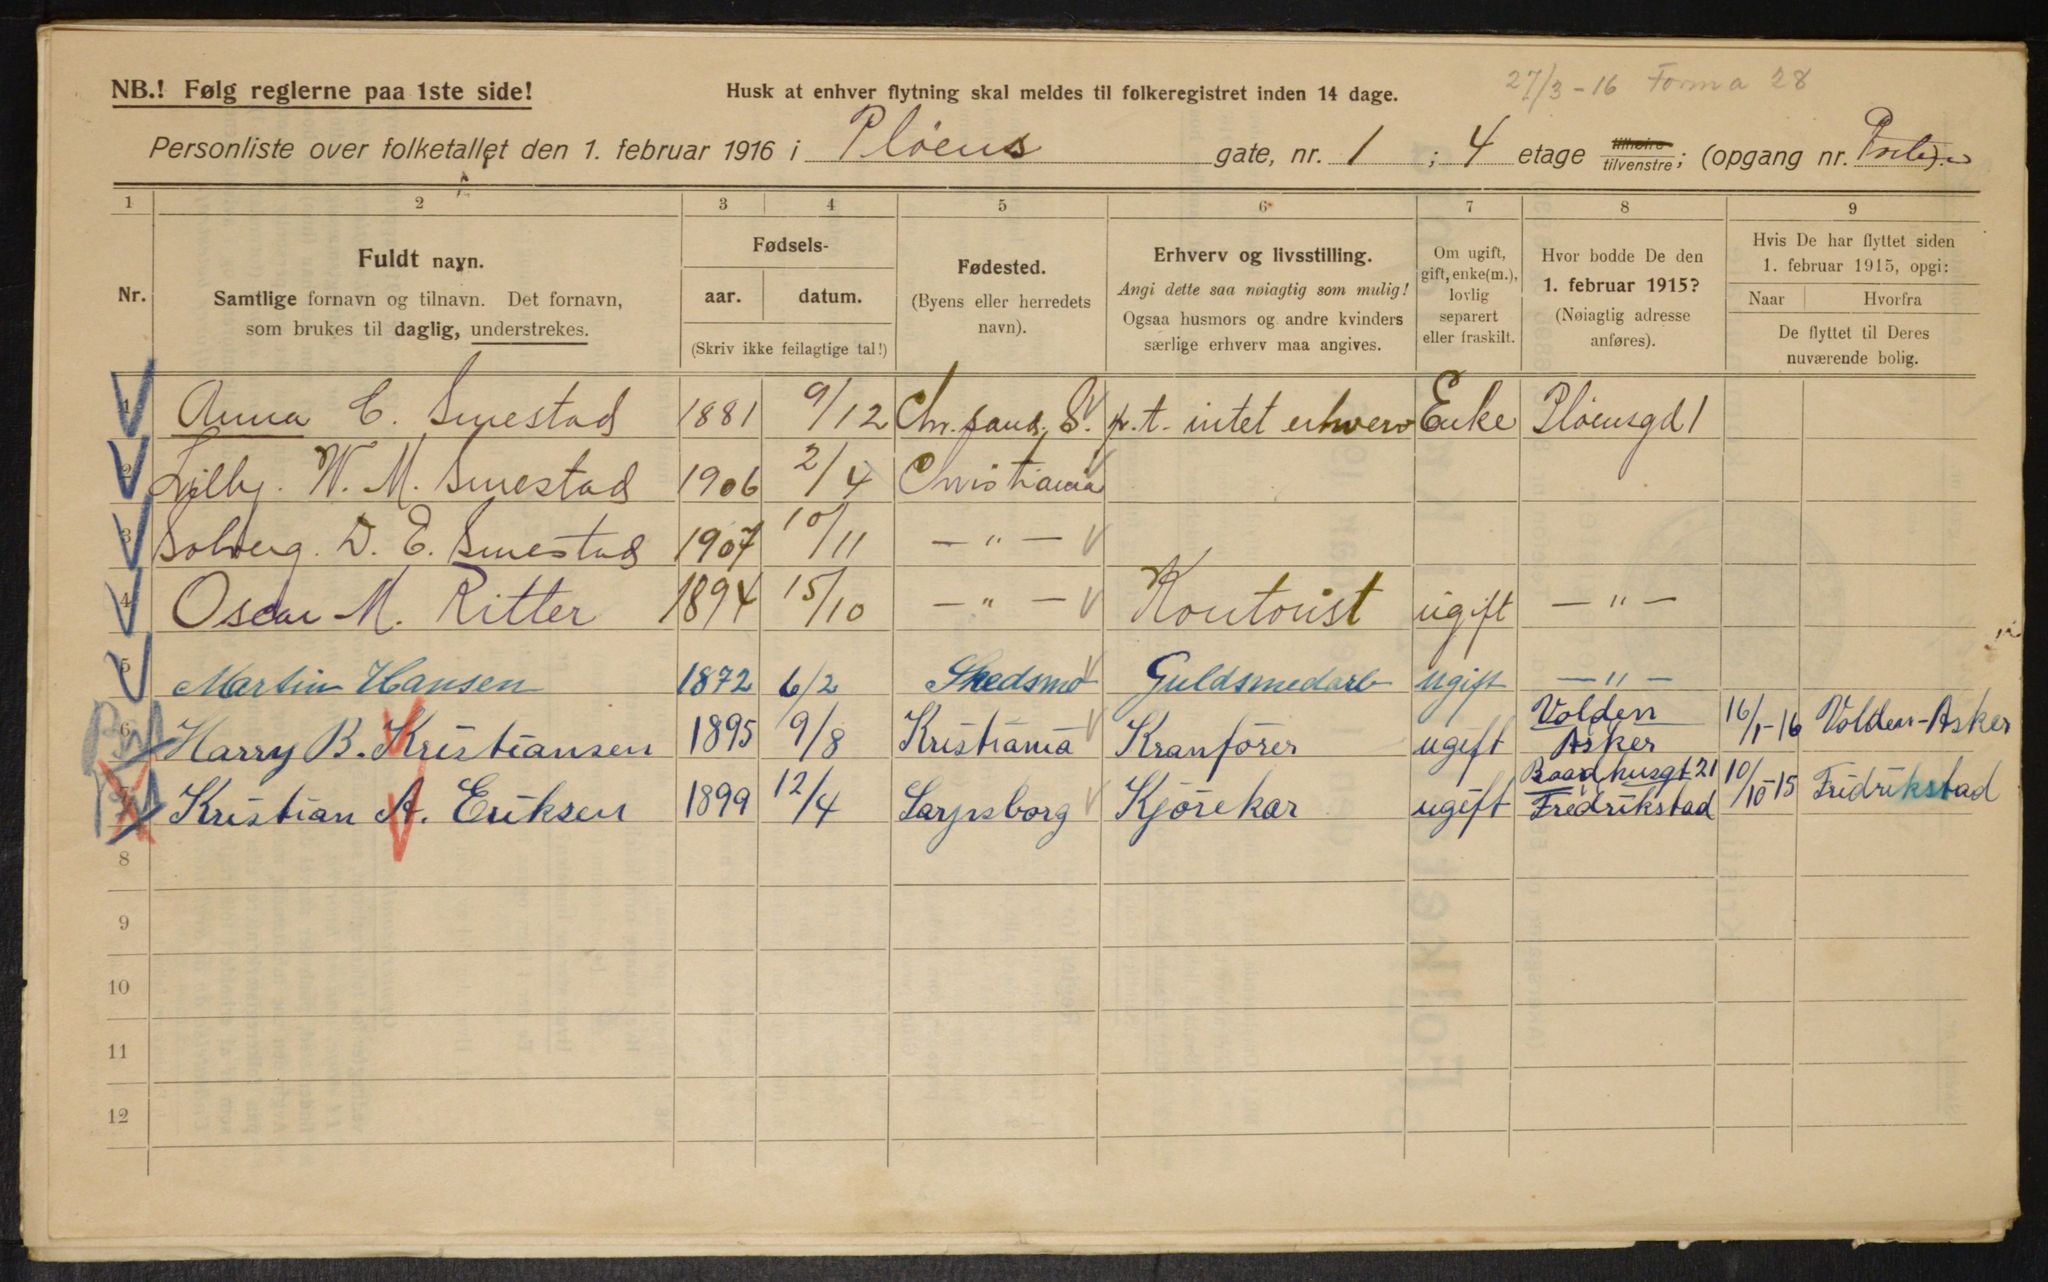 27/3 - 16 Forma 28
NB.! Følg reglerne paa 1ste side! Husk at enhver flytning skal meldes til folkeregistret inden 14 dage.
Personliste over folketallet den 1. februar 1916 i Pløens gate, nr. 1 ; 4 etage tilhøire tilvenstre; (opgang nr.
1 2 3 4 5 6 7 8 9
Nr.
Fuldt navn.
Samtlige fornavn og tilnavn. Det fornavn,
som brukes til daglig, understrekes.
Fødsels-
aar. datum.
(Skriv ikke feilagtige tal!)
Fødested.
(Byens eller herredets
navn).
Erhverv og livsstilling.
Angi dette saa nøiagtig som mulig!
Ogsaa husmors og andre kvinders
særlige erhverv maa angives.
Om ugift,
gift, enke(m.),
lovlig
separert
eller fraskilt.
Hvor bodde De den
1. februar 1915?
(Nøiagtig adresse
anføres).
Hvis De har flyttet siden
1. februar 1915, opgi:
Naar Hvorfra
De flyttet til Deres
nuværende bolig.
1 Anna C. Smestad 1881 9/12 Chr.sand. S. p.t. intet erhverv Enke Pløensgd 1
2 Lilly. W. M. Smestad 1906 2/4 Christiania
3 Solveig. D. E. Smestad 1907 10/11 — " —
4 Oscar M. Ritter 1894 15/10 — " — Kontorist ugift — " —
5 Martin Hansen 1872 6/2 Skedsmo Guldsmedarb ugift — " —
6 Harry B. Kristiansen 1895 9/8 Kristiania Kranfører ugift Volden Asker 16/1-16 Volden-Asker
7 Kristian A. Eriksen 1899 12/4 Sarpsborg Kjørekar ugift Raadhusgt 21 Fredrikstad 10/10-15 Fridrikstad
8
9
10
11
12